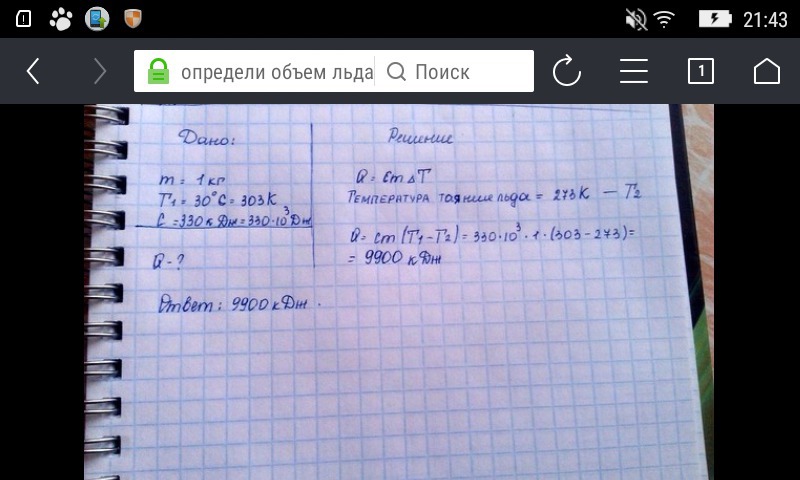 21:43
определи объем льда
Поиск
1
Дано:
m = 1 кг
T1 = 30°C = 303 К
C = 330 кДж = 330·10³ Дж
Q - ?
Ответ: 9900 кДж.
Решение
Q = cm△T
Температура таяние льда = 273 К — T2
Q = cm (T1 - T2) = 330·10³·1·(303 - 273) =
= 9900 кДж